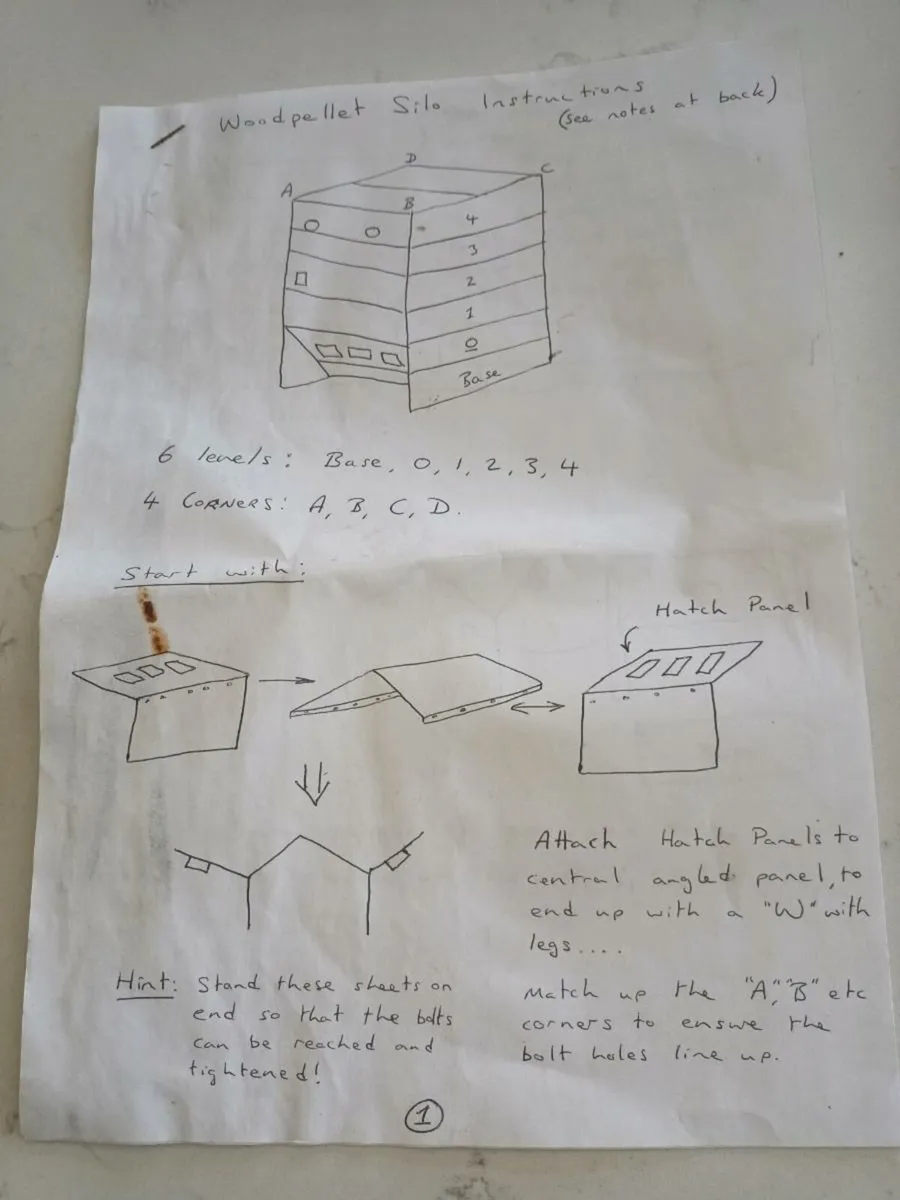 Woodpellet Silo Instructions
(see notes at back)
D
A
C
B
4
3
2
1
0
Base
6 levels: Base, 0, 1, 2, 3, 4
4 CORNERS: A, B, C, D.
Start with:
Hatch Panel
Attach Hatch Panels to
central angled panel, to
end up with a "W" with
legs....
Hint: Stand these sheets on
end so that the bolts
can be reached and
tightened!
Match up the "A", "B" etc
corners to ensure the
bolt holes line up.
1